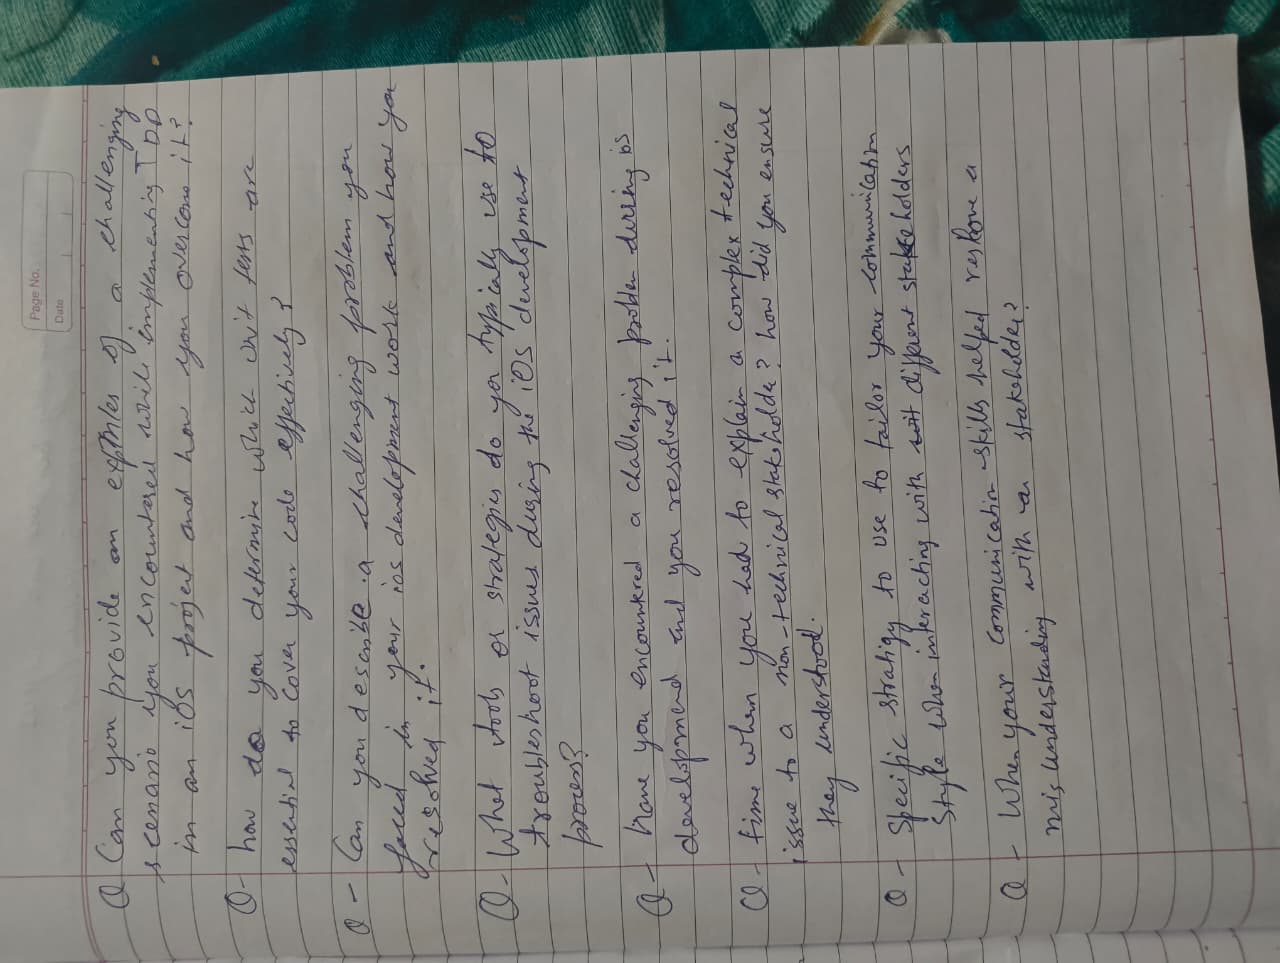 Page No.
Date
Q Can you provide an exples of a challenging
scenario you encountered while implementing TDD
in an iOS project and how you overcom it?
Q- how do you determine which unit tests are
essential to cover your code effectively?
Q- Can you describe a challenging problem you
faced in your ios development work and how you
resolved it.
Q- What tools or strategies do you typically use to
troubleshoot issues during the iOS development
process?
Q- have you encountered a challenging problem during ios
development and you resolved it.
Q- time when you had to explain a complex technical
issue to a non-technical stakeholder? how did you ensure
they understood.
Q- Specific stratigy to use to tailor your communication
Style when interacting with different stakeholders
Q- When your communication skills helped resolve a
misunderstanding with a stakeholder?